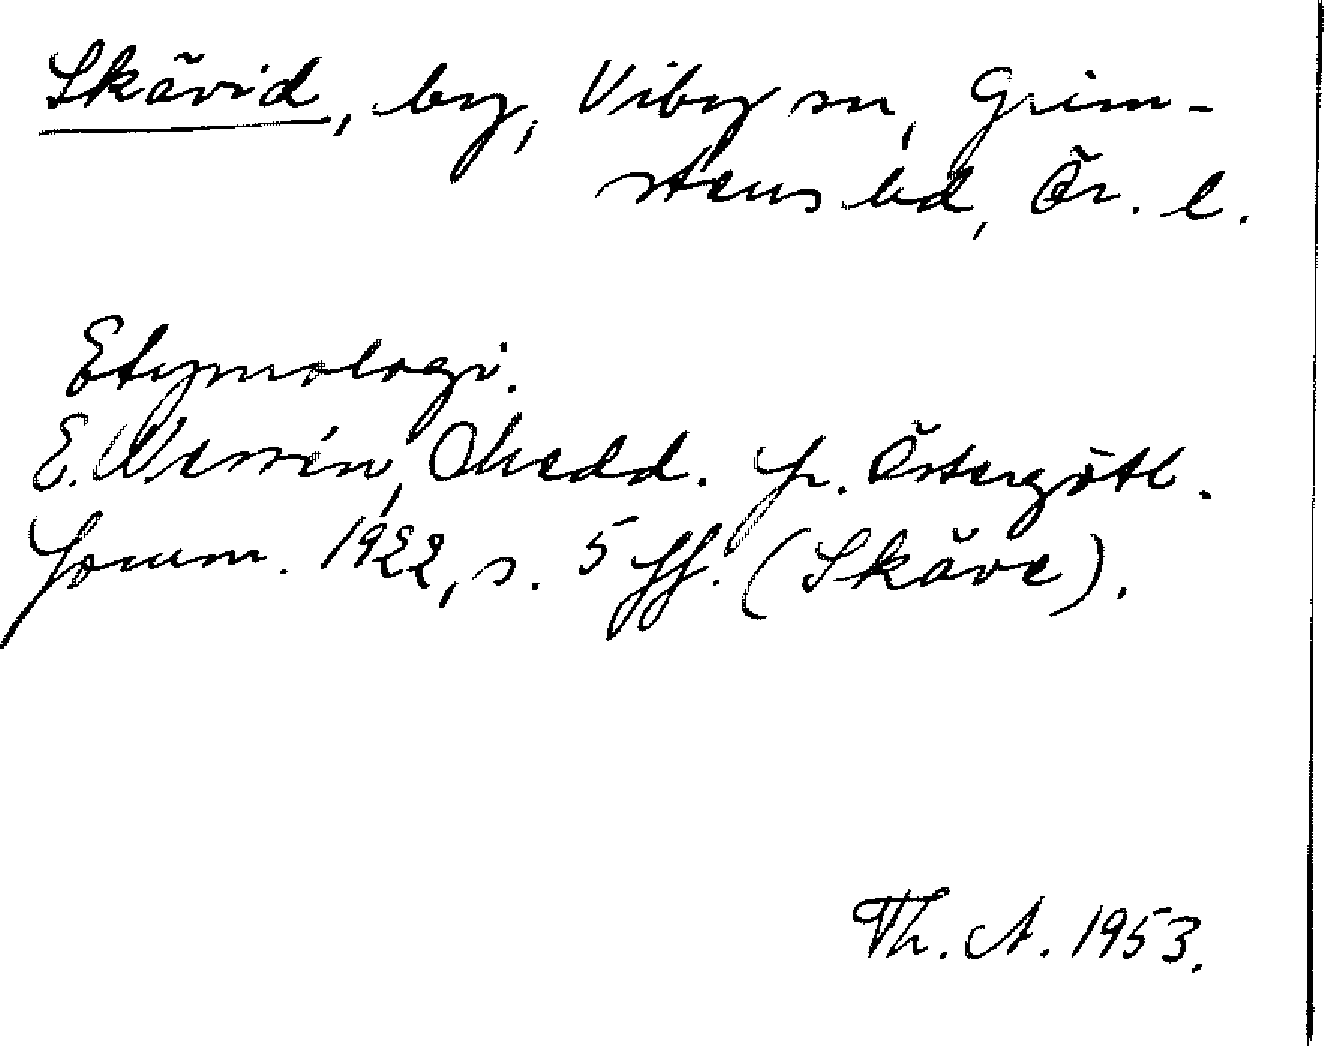 Skävid, by, Viby sn, Grim-
stens hd, Ör. l.
Etymologi.
E. Wessén, Medd. fr. Östergötl.
fornm. 1922, s. 5 ff. (Skäve).
Th. A. 1953.